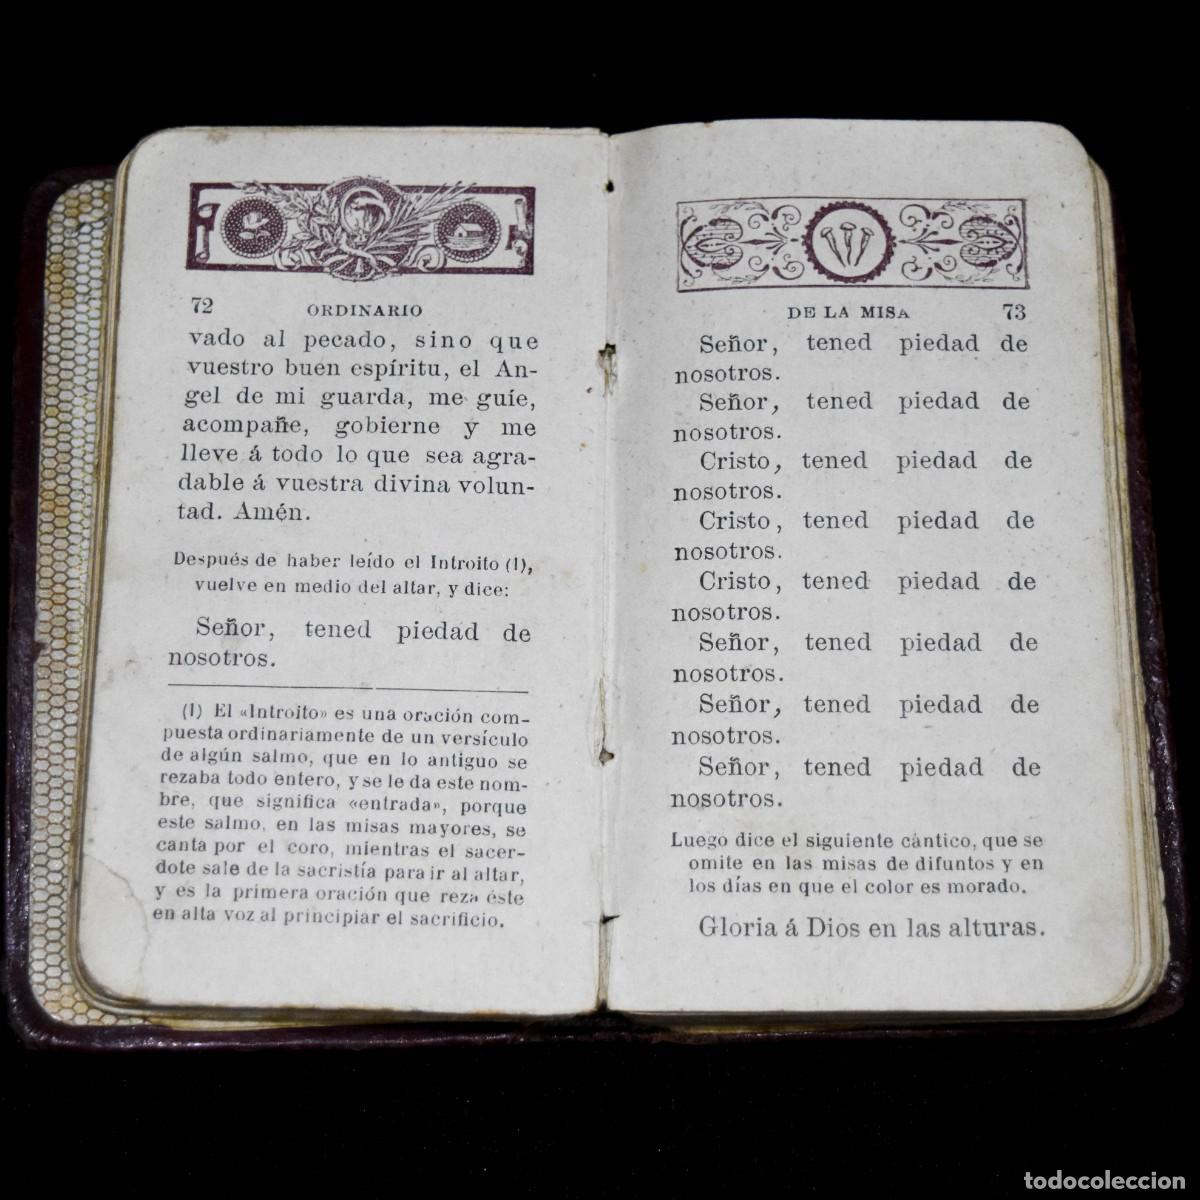 72 ORDINARIO
vado al pecado, sino que
vuestro buen espíritu, el An-
gel de mi guarda, me guíe,
acompañe, gobierne y me
lleve á todo lo que sea agra-
dable á vuestra divina volun-
tad. Amén.
Después de haber leído el Introito (1),
vuelve en medio del altar, y dice:
Señor, tened piedad de
nosotros.
(1) El «Introito» es una oración com-
puesta ordinariamente de un versículo
de algún salmo, que en lo antiguo se
rezaba todo entero, y se le da este nom-
bre, que significa «entrada», porque
este salmo, en las misas mayores, se
canta por el coro, mientras el sacer-
dote sale de la sacristía para ir al altar,
y es la primera oración que reza éste
en alta voz al principiar el sacrificio.
DE LA MISA 73
Señor, tened piedad de
nosotros.
Señor, tened piedad de
nosotros.
Cristo, tened piedad de
nosotros.
Cristo, tened piedad de
nosotros.
Cristo, tened piedad de
nosotros.
Señor, tened piedad de
nosotros.
Señor, tened piedad de
nosotros.
Señor, tened piedad de
nosotros.
Luego dice el siguiente cántico, que se
omite en las misas de difuntos y en
los días en que el color es morado.
Gloria á Dios en las alturas.
todocoleccion